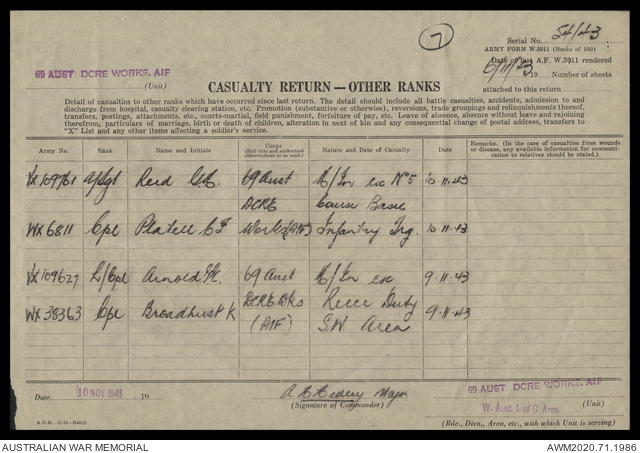 7
Serial No. 54/43
ARMY FORM W.3011 (Books of 100)
69 AUST. DCRE WORKS, AIF
Date of last A.F. W.3011 rendered
6/11/43 19 Number of sheets
(Unit)
CASUALTY RETURN—OTHER RANKS
attached to this return
Detail of casualties to other ranks which have occurred since last return. The detail should include all battle casualties, accidents, admission to and
discharge from hospital, casualty clearing station, etc. Promotion (substantive or otherwise), reversions, trade groupings and relinquishments thereof,
transfers, postings, attachments, etc., courts-martial, field punishment, forfeiture of pay, etc. Leave of absence, absence without leave and rejoining
therefrom, particulars of marriage, birth or death of children, alteration in next of kin and any consequential change of postal address, transfers to
"X" List and any other items affecting a soldier's service.
Army No. Rank Name and Initials Corps (Full title and authorised abbreviations to be used). Nature and Date of Casualty Date Remarks. (In the case of casualties from wounds or disease, any available information for communication to relatives should be stated.)
VX109761 A/Sgt Reid 69 Aust M/In ex No 5 10.11.43
DCRE Course Basic
WX6811 Cpl Platell C F Works (AIF) Infantry Trg. 10.11.43
VX109627 L/Cpl Arnold 69 Aust M/In ex 9.11.43
WX38363 Cpl Broadhurst K DCRE Wks Recce Duty 9.11.43
(AIF) S.W. Area
Date 10 NOV 1943 19 Major
(Signature of Commander)
69 AUST. DCRE WORKS, AIF
(Unit)
W. Aust L of C Area.
(Bde., Divn., Area, etc., with which Unit is serving)
AUSTRALIAN WAR MEMORIAL AWM2020.71.1986